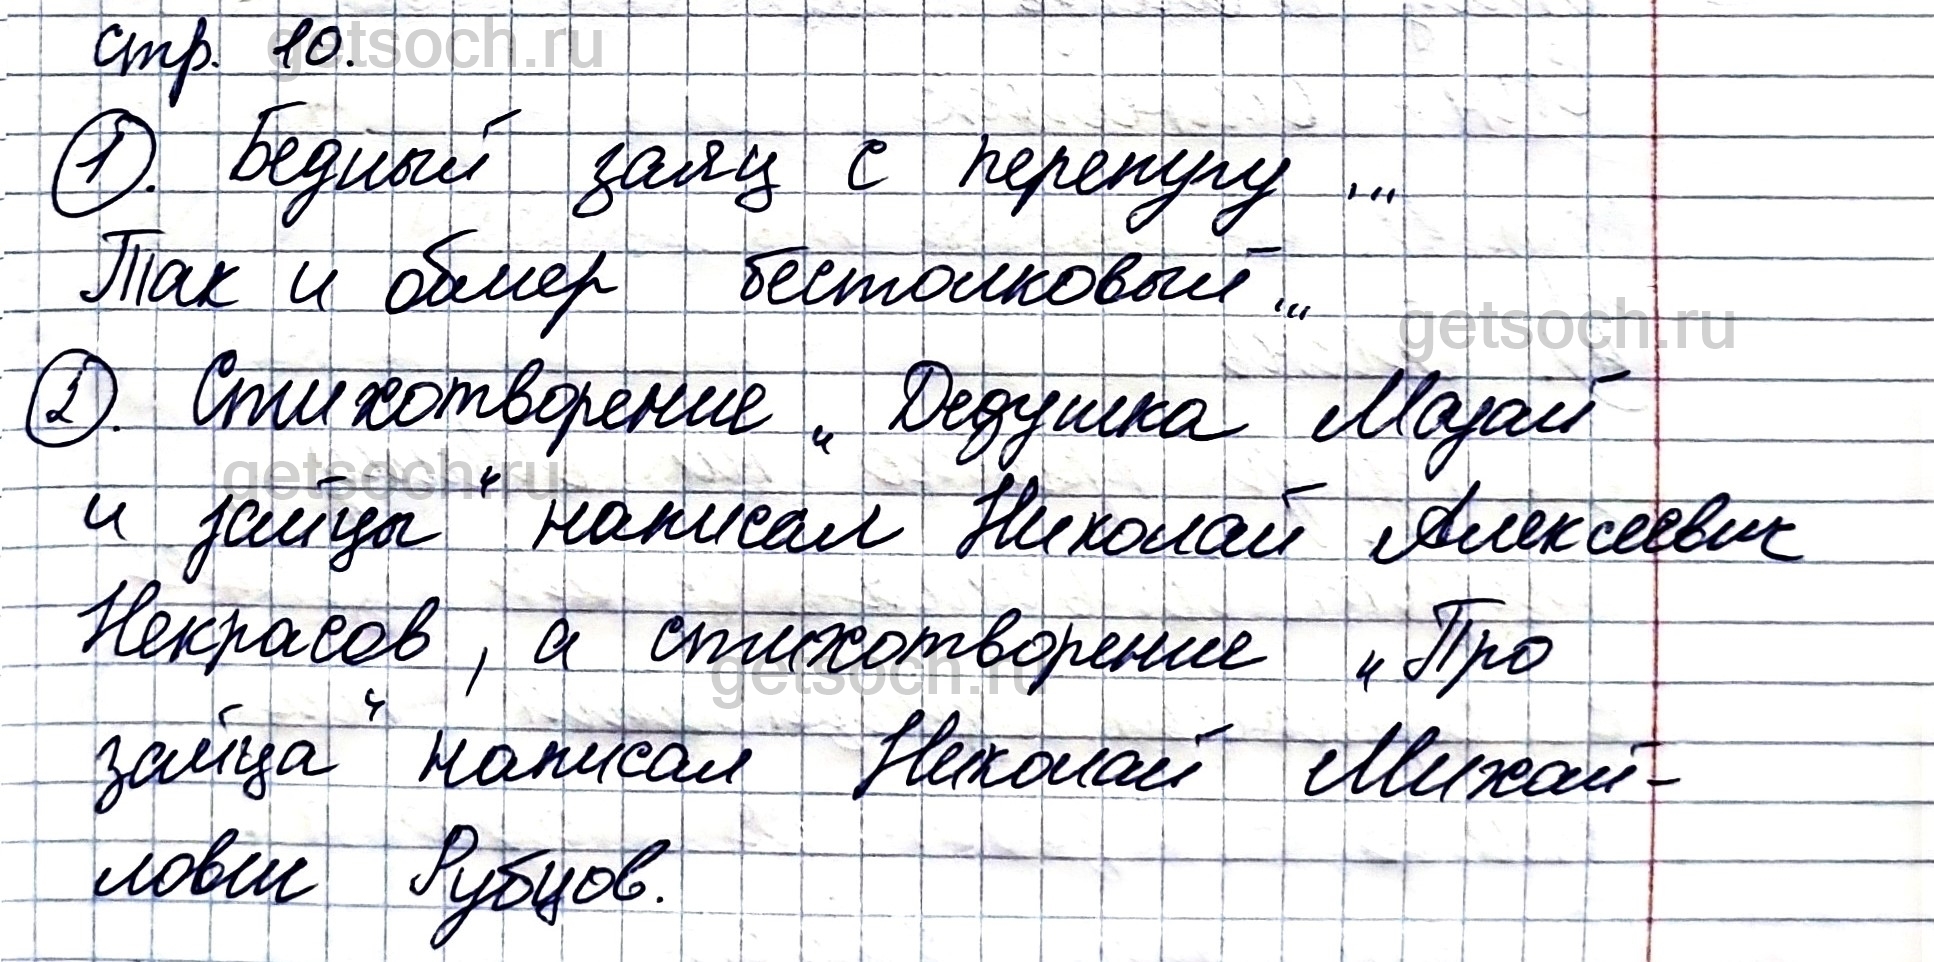 стр. 10.
1. Бедный заяц с перепугу ...
Так и обмер бестолковый ...
2. Стихотворение „Дедушка Мазай
и зайцы“ написал Николай Алексеевич
Некрасов, а стихотворение „Про
зайца“ написал Николай Михай-
лович Рубцов.
getsoch.ru
getsoch.ru
getsoch.ru
getsoch.ru